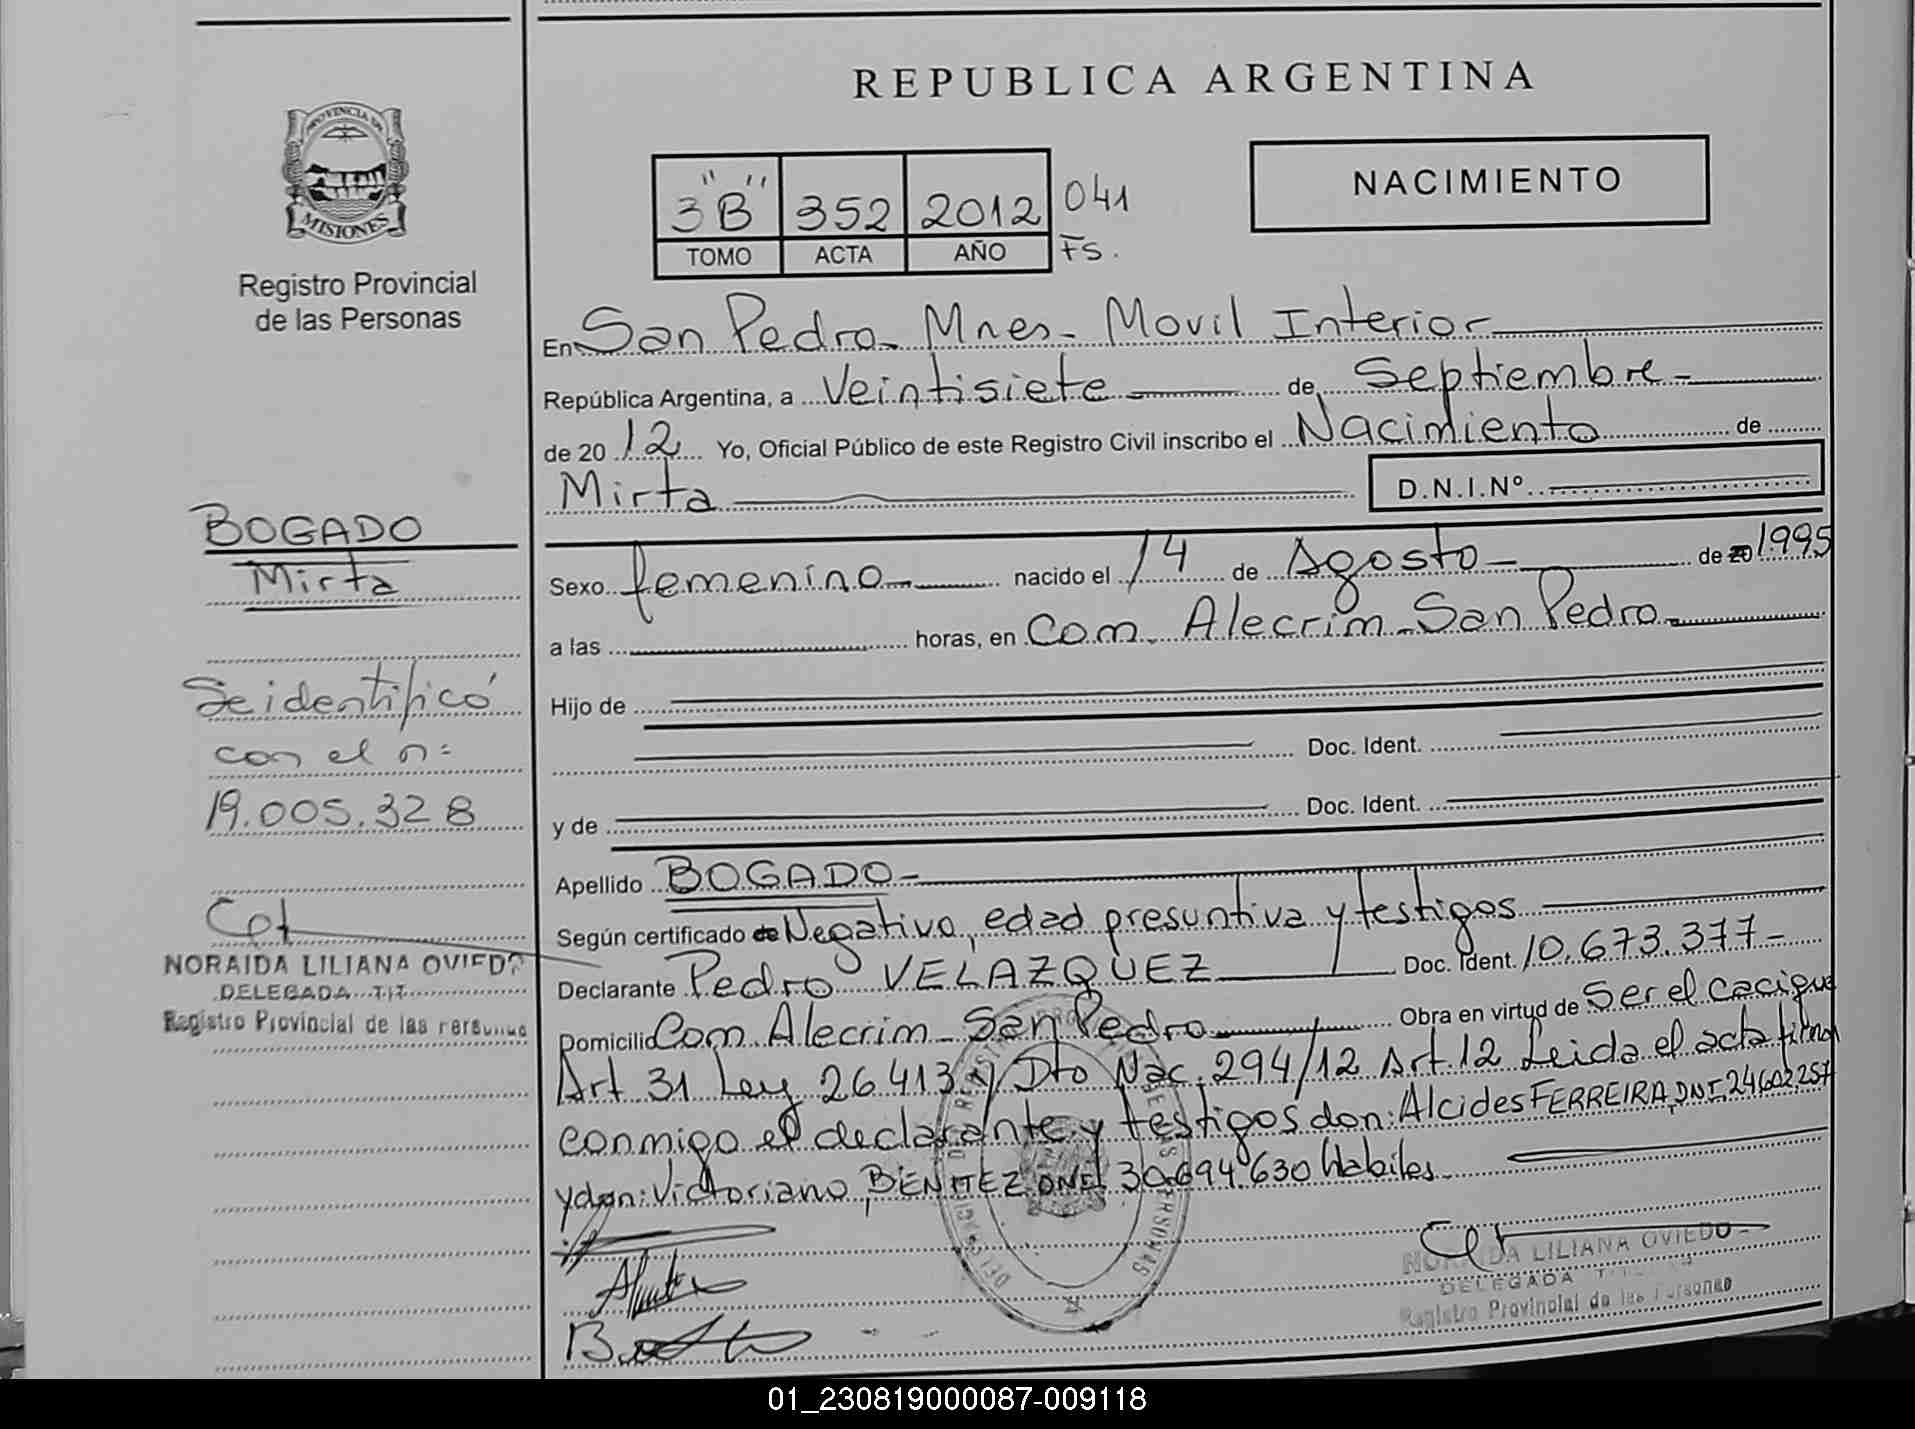 REPUBLICA ARGENTINA
NACIMIENTO
3 "B" 352 2012 041
TOMO ACTA AÑO Fs.
PROVINCIA DE
MISIONES
Registro Provincial
de las Personas
BOGADO
Mirta
Se identificó
con el n:
19.005.328
NORAIDA LILIANA OVIEDO
DELEGADA TIT
Registro Provincial de las Personas
En San Pedro - Mnes - Movil Interior
República Argentina, a Veintisiete de Septiembre -
de 20 12 Yo, Oficial Público de este Registro Civil inscribo el Nacimiento de
Mirta D.N.I.Nº
Sexo femenino nacido el 14 de Agosto - de 20 1995
a las horas, en Com. Alecrim - San Pedro
Hijo de
Doc. Ident.
y de Doc. Ident.
Apellido BOGADO -
Según certificado de Negativo, edad presuntiva y testigos
Declarante Pedro VELAZQUEZ Doc. Ident. 10.673.377 -
Domicilio Com. Alecrim - San Pedro Obra en virtud de Ser el Cacique
Art 31 Ley 26.413 y Dto Nac. 294/12 Art. 12 Leida el acta firma
conmigo el declarante y testigos don: Alcides FERREIRA, DNI. 24602.257
y don: Victoriano BENITEZ DNI 30.694.630 Habiles
NORAIDA LILIANA OVIEDO
DELEGADA
Registro Provincial de las Personas
01_230819000087-009118